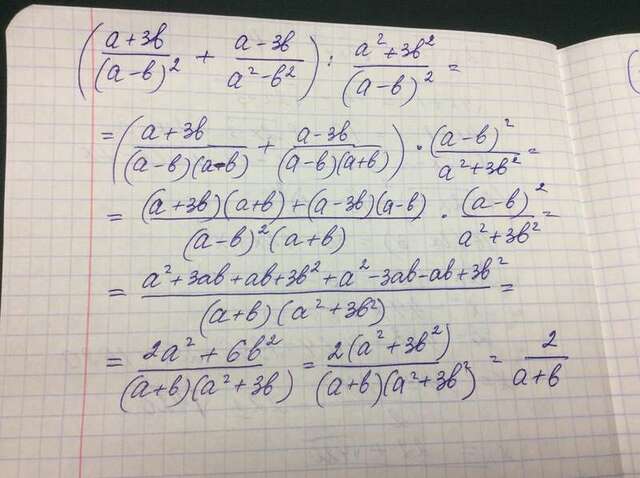 ( (a+3b)/(a-b)² + (a-3b)/(a²-b²) ) : (a²+3b²)/(a-b)² =
= ( (a+3b)/((a-b)(a-b)) + (a-3b)/((a-b)(a+b)) ) · (a-b)²/(a²+3b²) =
= ((a+3b)(a+b)+(a-3b)(a-b))/((a-b)²(a+b)) · (a-b)²/(a²+3b²) =
= (a²+3ab+ab+3b²+a²-3ab-ab+3b²)/((a+b)(a²+3b²)) =
= (2a²+6b²)/((a+b)(a²+3b)) = 2(a²+3b²)/((a+b)(a²+3b²)) = 2/(a+b)